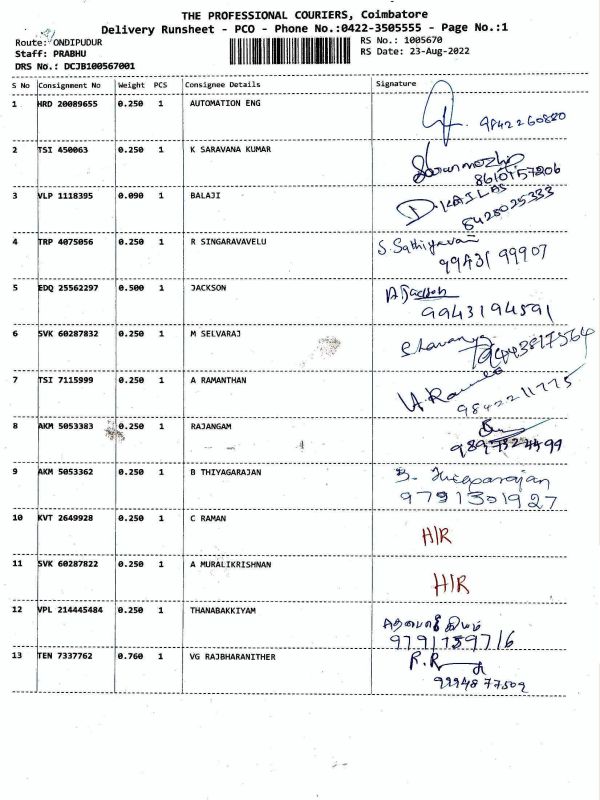 THE PROFESSIONAL COURIERS, Coimbatore
Delivery Runsheet - PCO - Phone No.:0422-3505555 - Page No.:1
Route: ONDIPUDUR
RS No.: 1005670
Staff: PRABHU
RS Date: 23-Aug-2022
DRS No.: DCJB100567001
S No Consignment No Weight PCS Consignee Details Signature
1 HRD 20089655 0.250 1 AUTOMATION ENG
9842260820
2 TSI 450063 0.250 1 K SARAVANA KUMAR
8610157206
3 VLP 1118395 0.090 1 BALAJI
D.KAILAS
8428025333
4 TRP 4075056 0.250 1 R SINGARAVAVELU
S. Sathiyavani
99431 99907
5 EDQ 25562297 0.500 1 JACKSON
A Jackson
9943194591
6 SVK 60287832 0.250 1 M SELVARAJ
7 TSI 7115999 0.250 1 A RAMANTHAN
9842211775
8 AKM 5053383 0.250 1 RAJANGAM
9 AKM 5053362 0.250 1 B THIYAGARAJAN
B.
9791301927
10 KVT 2649928 0.250 1 C RAMAN
H/R
11 SVK 60287822 0.250 1 A MURALIKRISHNAN
H/R
12 VPL 214445484 0.250 1 THANABAKKIYAM
9791159716
13 TEN 7337762 0.760 1 VG RAJBHARANITHER
R.R
9994877509